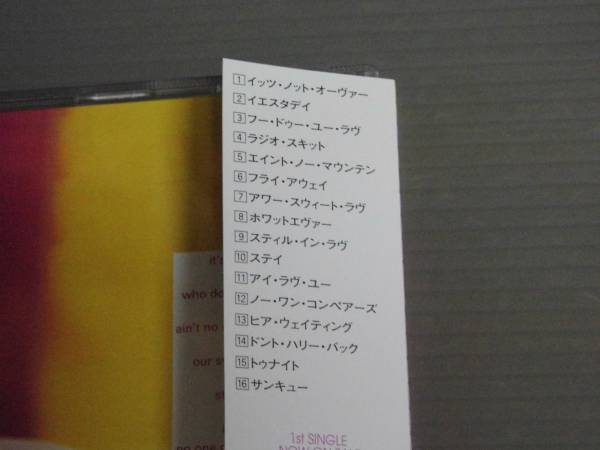 1 イッツ・ノット・オーヴァー
2 イエスタデイ
3 フー・ドゥー・ユー・ラヴ
4 ラジオ・スキット
5 エイント・ノー・マウンテン
6 フライ・アウェイ
7 アワー・スウィート・ラヴ
8 ホワットエヴァー
9 スティル・イン・ラヴ
10 ステイ
11 アイ・ラヴ・ユー
12 ノー・ワン・コンペアーズ
13 ヒア・ウェイティング
14 ドント・ハリー・バック
15 トゥナイト
16 サンキュー
1st SINGLE
it's
who do
ain't no
our s
st
no one